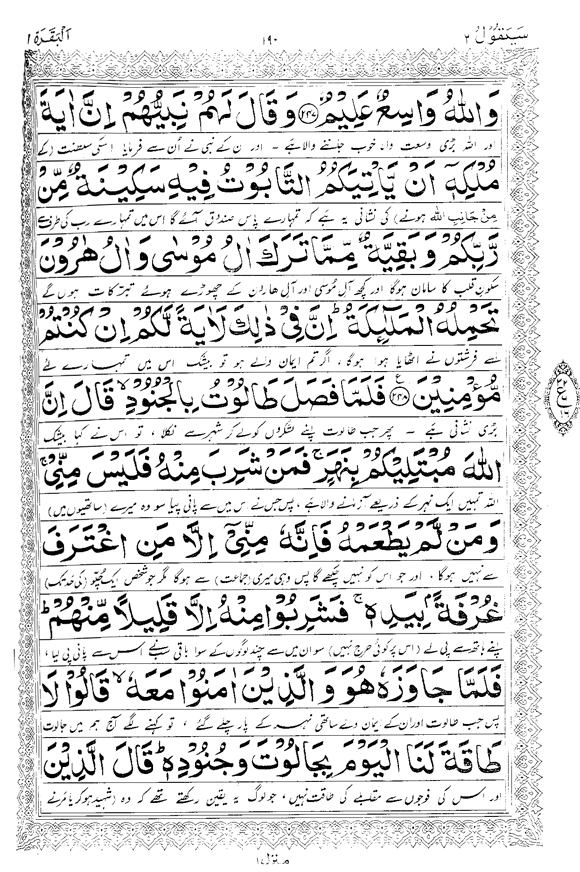 سَيَقُوْلُ ٢
١٩٠
اَلْبَقَرَة ٢
وَاللّٰهُ وَاسِعٌ عَلِيْمٌ ﴿٢٤٧﴾ وَقَالَ لَهُمْ نَبِيُّهُمْ اِنَّ اٰيَةَ
اور اللہ بڑی وسعت والا خوب جاننے والا ہے ۔ اور ان کے نبی نے اُن سے فرمایا اسکی سلطنت (کے
مُلْكِهٖۤ اَنْ يَّاْتِيَكُمُ التَّابُوْتُ فِيْهِ سَكِيْنَةٌ مِّنْ
مِنْ جَانِبِ اللہ ہونے) کی نشانی یہ ہے کہ تمہارے پاس صندوق آئے گا اس میں تمہارے رب کی طرف سے
رَّبِّكُمْ وَبَقِيَّةٌ مِّمَّا تَرَكَ اٰلُ مُوْسٰى وَاٰلُ هٰرُوْنَ
سکونِ قلب کا سامان ہوگا اور کچھ آلِ مُوسیٰ اور آلِ ھارُون کے چھوڑے ہوئے تبرّکات ہوں گے
تَحْمِلُهُ الْمَلٰٓئِكَةُ ؕ اِنَّ فِيْ ذٰلِكَ لَاٰيَةً لَّكُمْ اِنْ كُنْتُمْ
اسے فرشتوں نے اٹھایا ہوا ہوگا ، اگر تم ایمان والے ہو تو بیشک اس میں تمہارے لئے
مُّؤْمِنِيْنَ ﴿٢٤٨﴾ فَلَمَّا فَصَلَ طَالُوْتُ بِالْجُنُوْدِ ۙ قَالَ اِنَّ
بڑی نشانی ہے ۔ پھر جب طالوت اپنے لشکروں کو لے کر شہر سے نکلا ، تو اس نے کہا بیشک
اللّٰهَ مُبْتَلِيْكُمْ بِنَهَرٍ ۚ فَمَنْ شَرِبَ مِنْهُ فَلَيْسَ مِنِّيْ ۚ
اللہ تمہیں ایک نہر کے ذریعے آزمانے والا ہے ، پس جس نے اس میں سے پانی پیا سو وہ میرے (ساتھیوں میں)
وَمَنْ لَّمْ يَطْعَمْهُ فَاِنَّهٗ مِنِّيْۤ اِلَّا مَنِ اغْتَرَفَ
سے نہیں ہوگا ، اور جو اس کو نہیں چکھے گا پس وہی میری (جماعت) سے ہوگا مگر جو شخص ایک چُلّو (کی حد تک)
غُرْفَةًۢ بِيَدِهٖ ۚ فَشَرِبُوْا مِنْهُ اِلَّا قَلِيْلًا مِّنْهُمْ ؕ
اپنے ہاتھ سے پی لے (اس پر کوئی حرج نہیں) سو ان میں سے چند لوگوں کے سوا باقی سب نے اس سے پانی پی لیا ،
فَلَمَّا جَاوَزَهٗ هُوَ وَالَّذِيْنَ اٰمَنُوْا مَعَهٗ ۙ قَالُوْا لَا
پس جب طالوت اور ان کے ایمان والے ساتھی نہر کے پار چلے گئے ، تو کہنے لگے آج ہم میں جالوت
طَاقَةَ لَنَا الْيَوْمَ بِجَالُوْتَ وَجُنُوْدِهٖ ؕ قَالَ الَّذِيْنَ
اور اس کی فوجوں سے مقابلے کی طاقت نہیں ، جو لوگ یہ یقین رکھتے تھے کہ وہ (شہید ہو کر یا مرنے
منزل ١